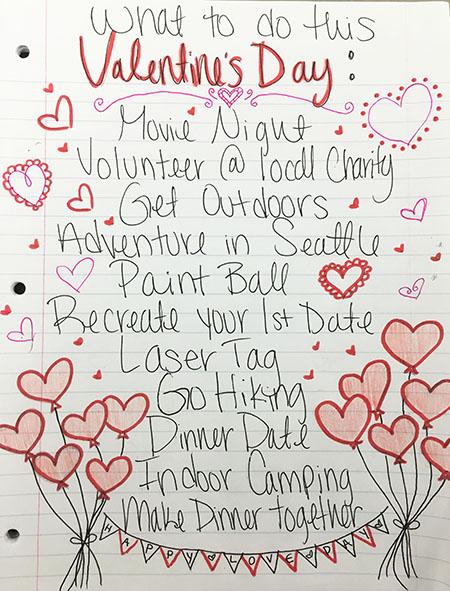 What to do this
Valentine's Day:
Movie Night
Volunteer @ local Charity
Get Outdoors
Adventure in Seattle
Paint Ball
Recreate your 1st Date
Laser Tag
Go Hiking
Dinner Date
Indoor Camping
Make Dinner together
HAPPY♥LOVE♥DAY